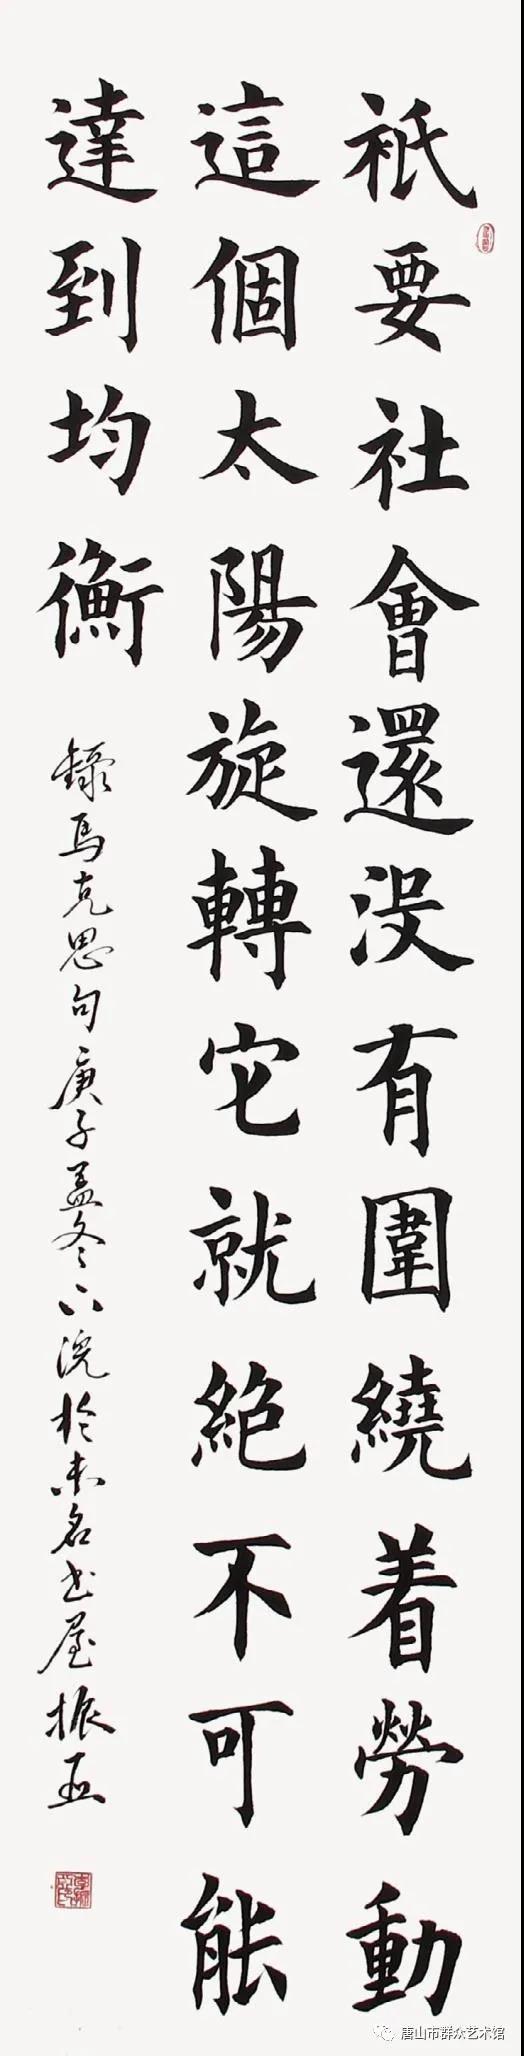 祇要社會還没有圍繞着勞動
這個太陽旋轉它就絕不可能
達到均衡
錄馬克思句庚子孟冬下浣於未名書屋振
唐山市群众艺术馆